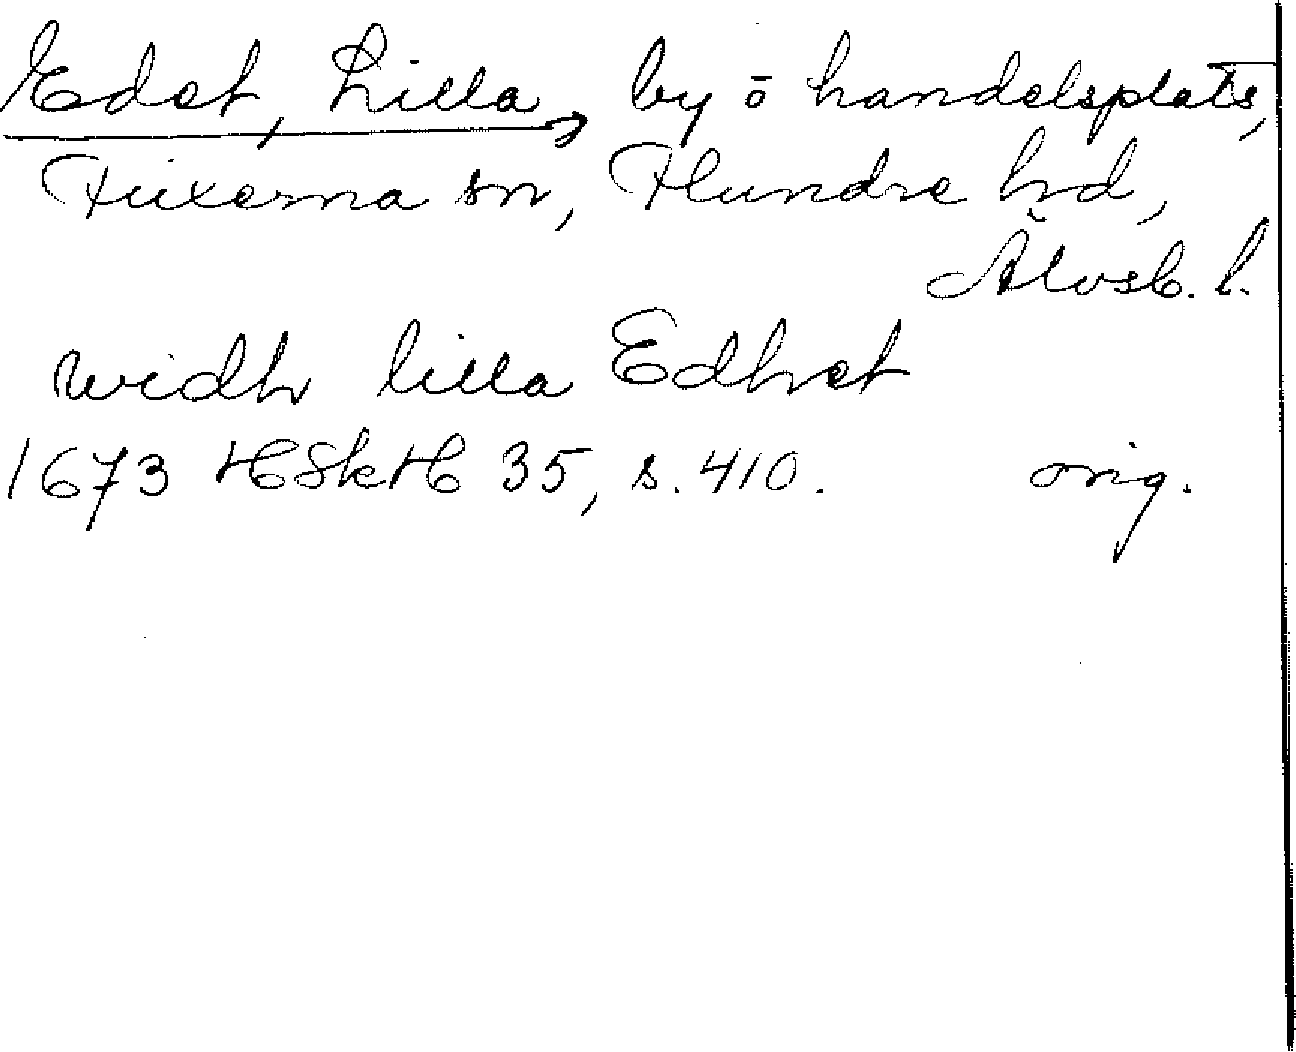 Edet, Lilla, by ō handelsplats,
Fuxerna sn, Flundre hd,
Älvsb. l.
widh lilla Edhet
1673 HSkH 35, s. 410. orig.